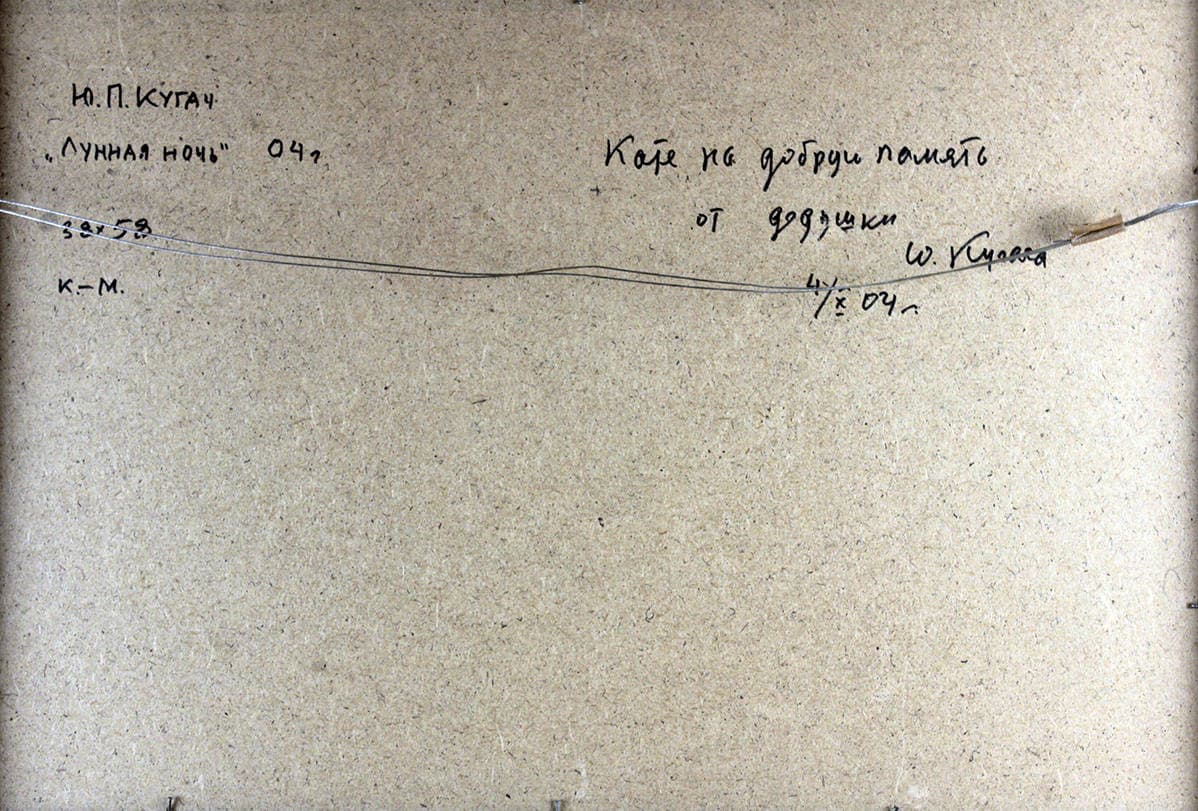 Ю.П.КУГАЧ
„ЛУННАЯ НОЧЬ" 04г
38х58
К.-М.
Кате на добрую память
от дедушки
Ю. Кугача
4/X 04г.